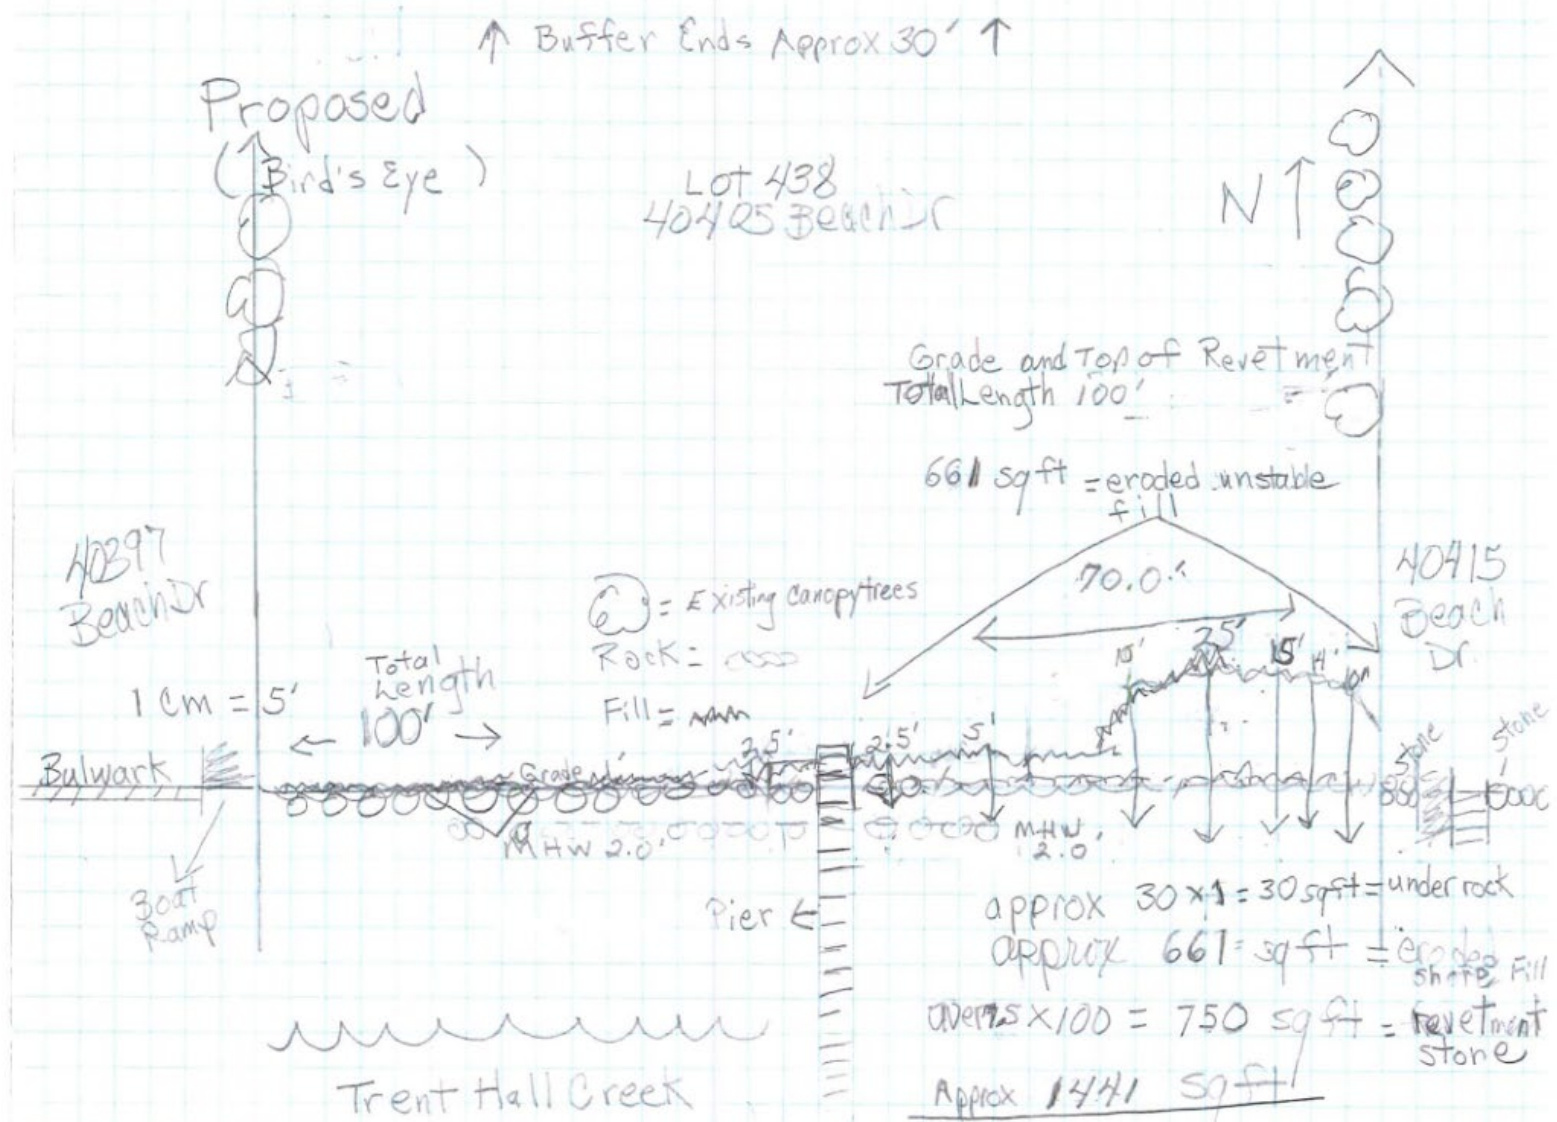 ↑ Buffer Ends Approx 30' ↑
Proposed
(Bird's Eye)
Lot 438
40405 Beach Dr
N ↑
Grade and Top of Revetment
Total Length 100'
661 sq ft = eroded unstable
fill
70.0'
40397
Beach Dr
40415
Beach
Dr.
= Existing canopy trees
Rock =
Fill =
1 cm = 5'
Total
Length
100'
25'
15'
2.5'
2.5'
5'
Grade
Stone
Stone
Bulwark
MHW 2.0'
MHW
2.0'
Boat
Ramp
Pier ←
approx 30 x 1 = 30 sq ft = under rock
approx 661 sq ft = eroded
shore Fill
750 sq ft = revetment
stone
Approx 1441 sq ft
Trent Hall Creek